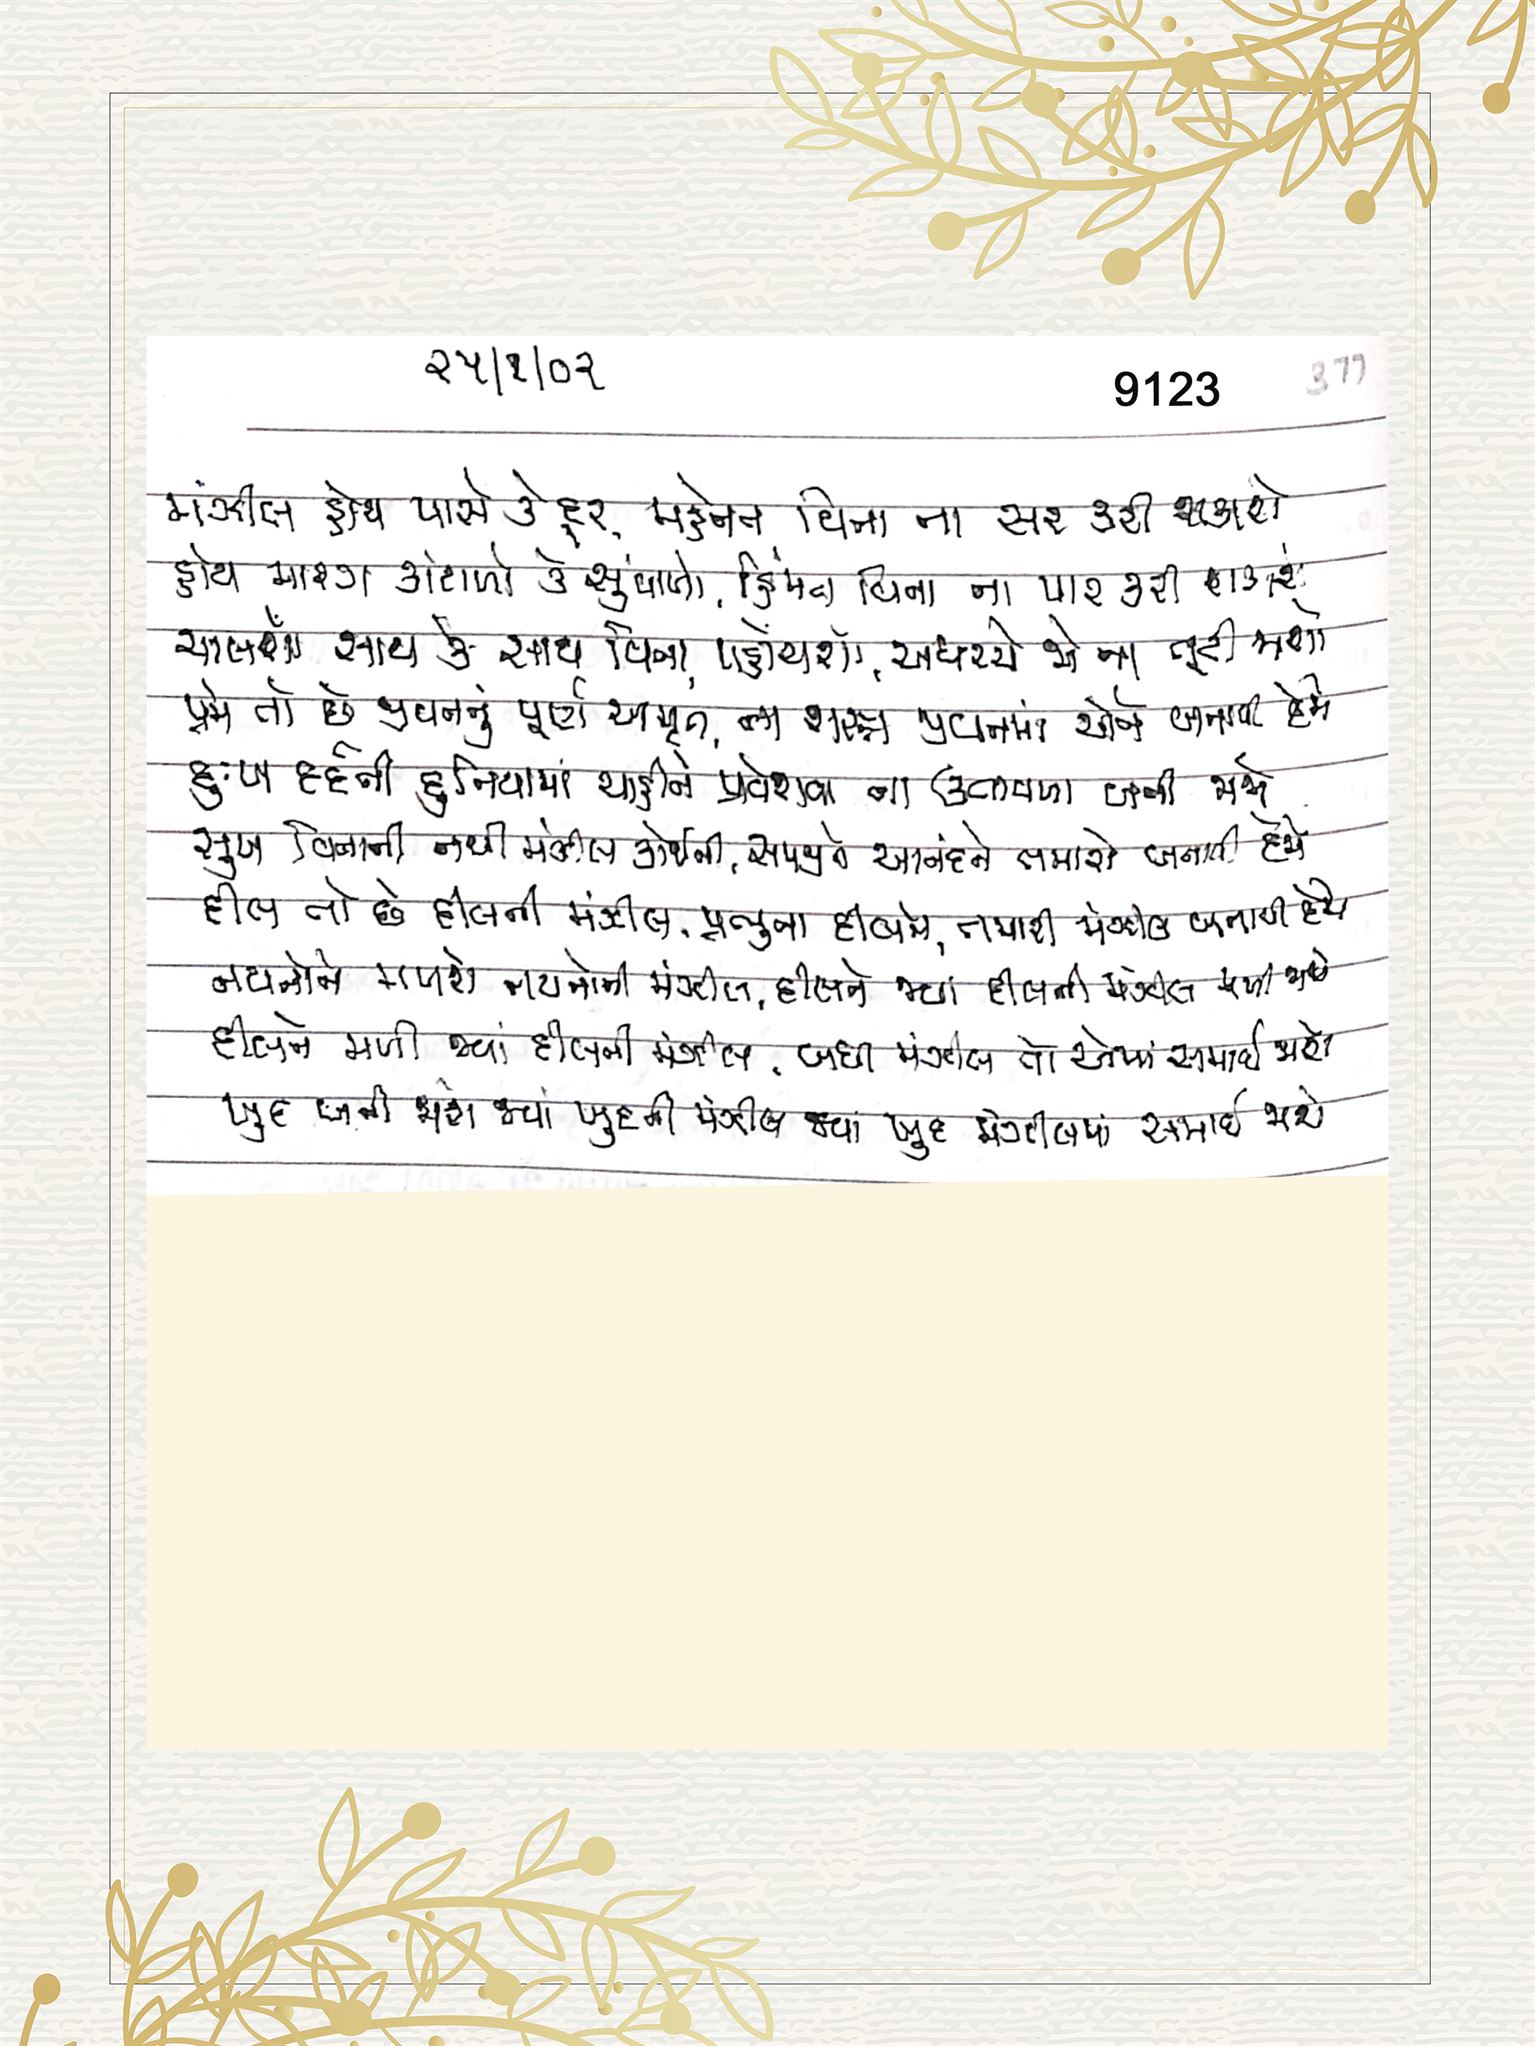 ૨૫/૧/૦૨
9123
377
મંઝીલ હોય પાસે કે દૂર, મહેનત વિના ના સર કરી શકાશે
હોય મારગ કાંટાળો કે સુંવાળો, હિંમત વિના ના પાર કરી શકાશે
ચાલશો સાથ કે સાથ વિના, પહોંચશો, અધરસ્તે જો ના તૂટી જાશો
પ્રેમ તો છે જીવનનું પૂર્ણ અમૃત, ના જીવનમાં એને બનાવી દેજે
દુઃખ દર્દની દુનિયામાં ચાહીને પ્રવેશવા ના ઉતાવળા બની જાજે
સુખ વિનાની નથી મંઝીલ કોઈની, આનંદને તમાશો બનાવી દેજે
દીલ તો છે દીલની મંઝીલ, પ્રભુના દીલને, તમારી મંઝીલ બનાવી દેજે
નયનોને મળશે નયનોની મંઝીલ, દીલને જ્યાં દીલની મંઝીલ મળી જાશે
દીલને મળી જ્યાં દીલની મંઝીલ, બધી મંઝીલ તો એમાં સમાઈ જાશે
ખુદ બની જાશે જ્યાં ખુદની મંઝીલ જ્યાં ખુદ મંઝીલમાં સમાઈ જાશે